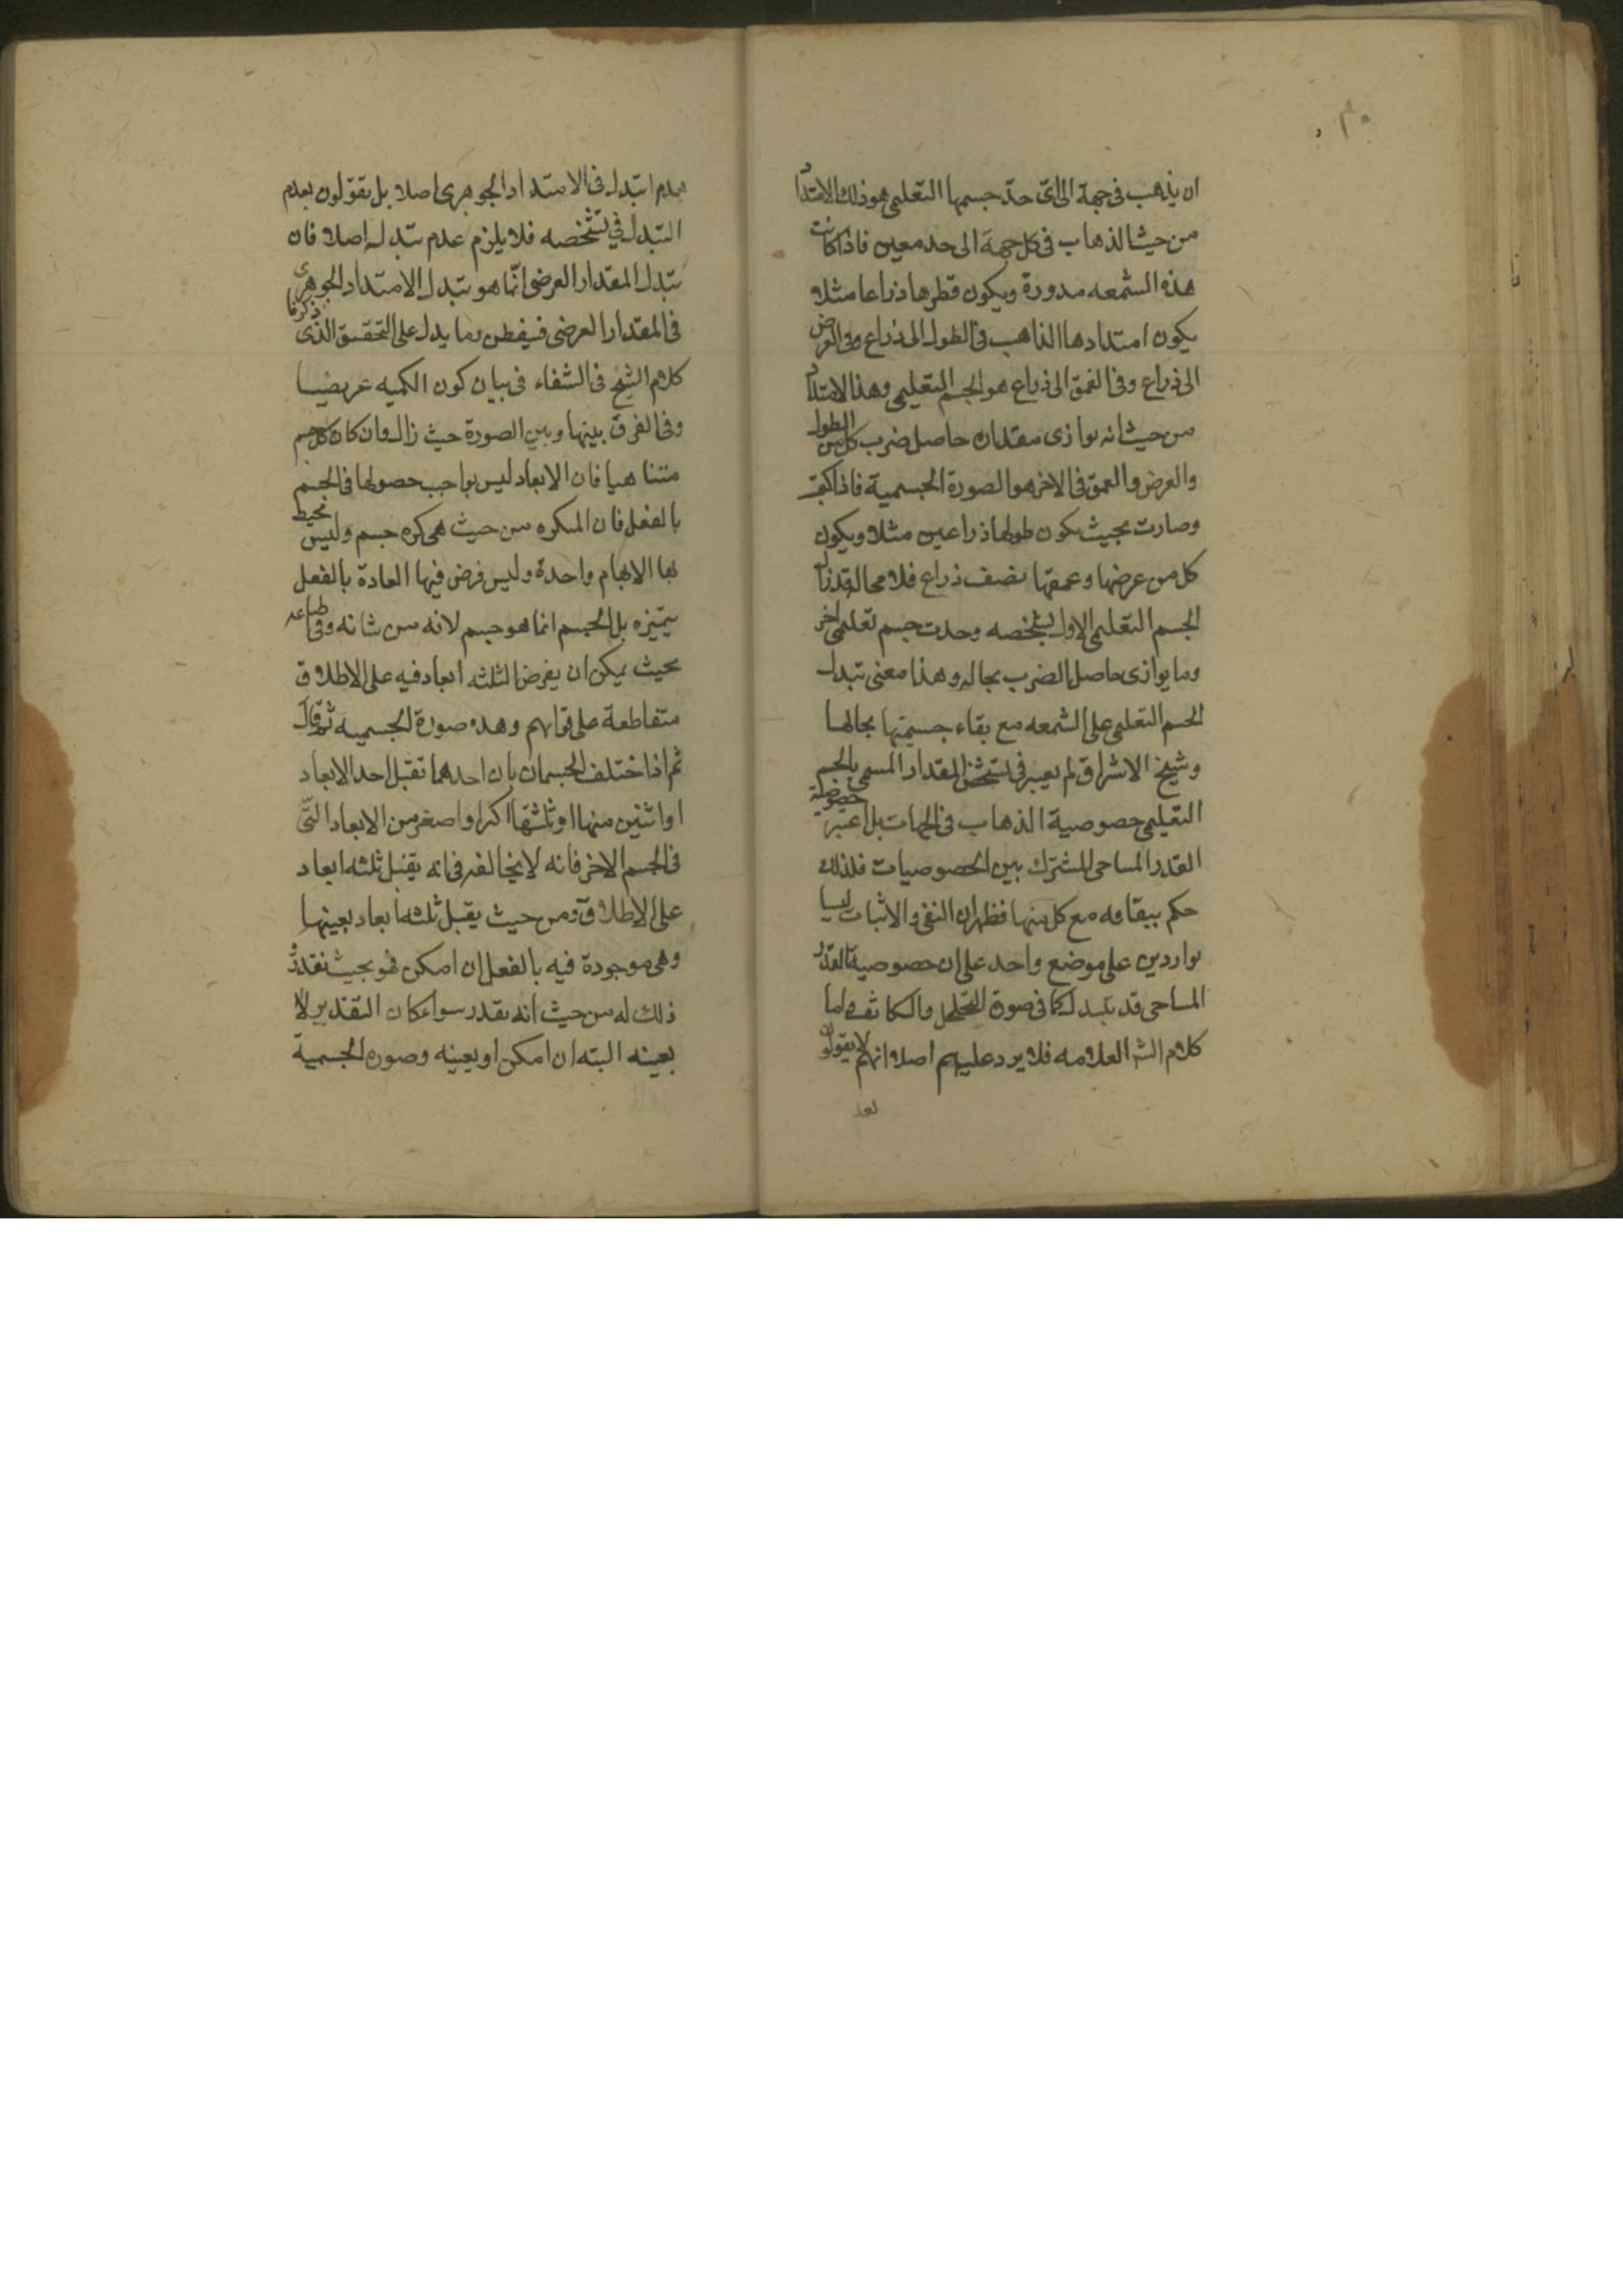 ان يذهب فى جهة الى اىّ حدّ جسمها التعليمى هو ذلك الامتداد
من حيث الذهاب فى كل جهة الى حد معين فاذا كانت
هذه الشمعه مدورة ويكون قطرها ذراعا مثلا
يكون امتدادها الذاهب فى الطول الى ذراع وفى العرض
الى ذراع وفى العمق الى ذراع هو الجسم التعليمى وهذا الامتداد
من حيث انه يوازى مقدار حاصل ضرب كل من الطول
والعرض والعمق فى الاخر هو الصورة الجسمية فاذا
وصارت بحيث يكون طولها ذراعين مثلا ويكون
كل من عرضها وعمقها نصف ذراع فلا محالة قد زال
الجسم التعليمى الاول بشخصه وحدث جسم تعليمى اخر
وما يوازى حاصل الضرب بحاله وهذا معنى تبدل
الجسم التعليمى على الشمعه مع بقاء جسميتها بحالها
وشيخ الاشراق لم يعبر فى تشخص المقدار المسمى بالجسم
التعليمى خصوصية الذهاب فى الجهات بل اعتبر خصوصية
القدر المساحى المشترك بين الخصوصيات فلذلك
حكم ببقائه مع كل منها فظهر ان النفى والاثبات ليسا
بواردين على موضع واحد على ان خصوصية القدر
المساحى قد يتبدل كما فى صورة التخلخل والتكاثف واما
كلام الش العلامه فلا يرد عليهم اصلا انهم لا يقولون
بعد
بعدم التبدل فى الامتداد الجوهرى اصلا بل يقولون بعدم
التبدل فى تشخصه فلا يلزم عدم تبدله اصلا فان
تبدل المقدار العرضى انّما هو تبدل الامتداد الجوهرى
فى المقدار العرضى فيفطن وما يدل على التحقيق الذى ذكرنا
كلام الشيخ فى الشفاء فى بيان كون الكميه عرضيا
وفى الفرق بينها وبين الصورة حيث قال وان كان كل جسم
متناهيا فان الابعاد ليس بواجب حصولها فى الجسم
بالفعل فان الكره من حيث هى كره جسم وليس محيط
بها الابهام واحدة وليس فرض فيها العادة بالفعل
يتميزه بل الجسم انما هو جسم لانه من شانه وفى طباعه
بحيث يمكن ان يفرض الثلثه ابعاد فيه على الاطلاق
متقاطعة على قوايم وهذه صورة الجسميه ثم قال
ثم اذا اختلف الجسمان بان احدهما تقبل احد الابعاد
او اثنين منها او ثلثها اكبر او اصغر من الابعاد التّى
فى الجسم الاخر فانه لا يخالفه فى انه يقبل ثلثه ابعاد
على الاطلاق ومن حيث يقبل ثلثه ابعاد بعينها
وهى موجودة فيه بالفعل ان امكن فهو بحيث نقدر
ذلك له من حيث انه يقدر سواء كان التقدير لا
بعينه البته ان امكن او بعينه وصورة الجسمية